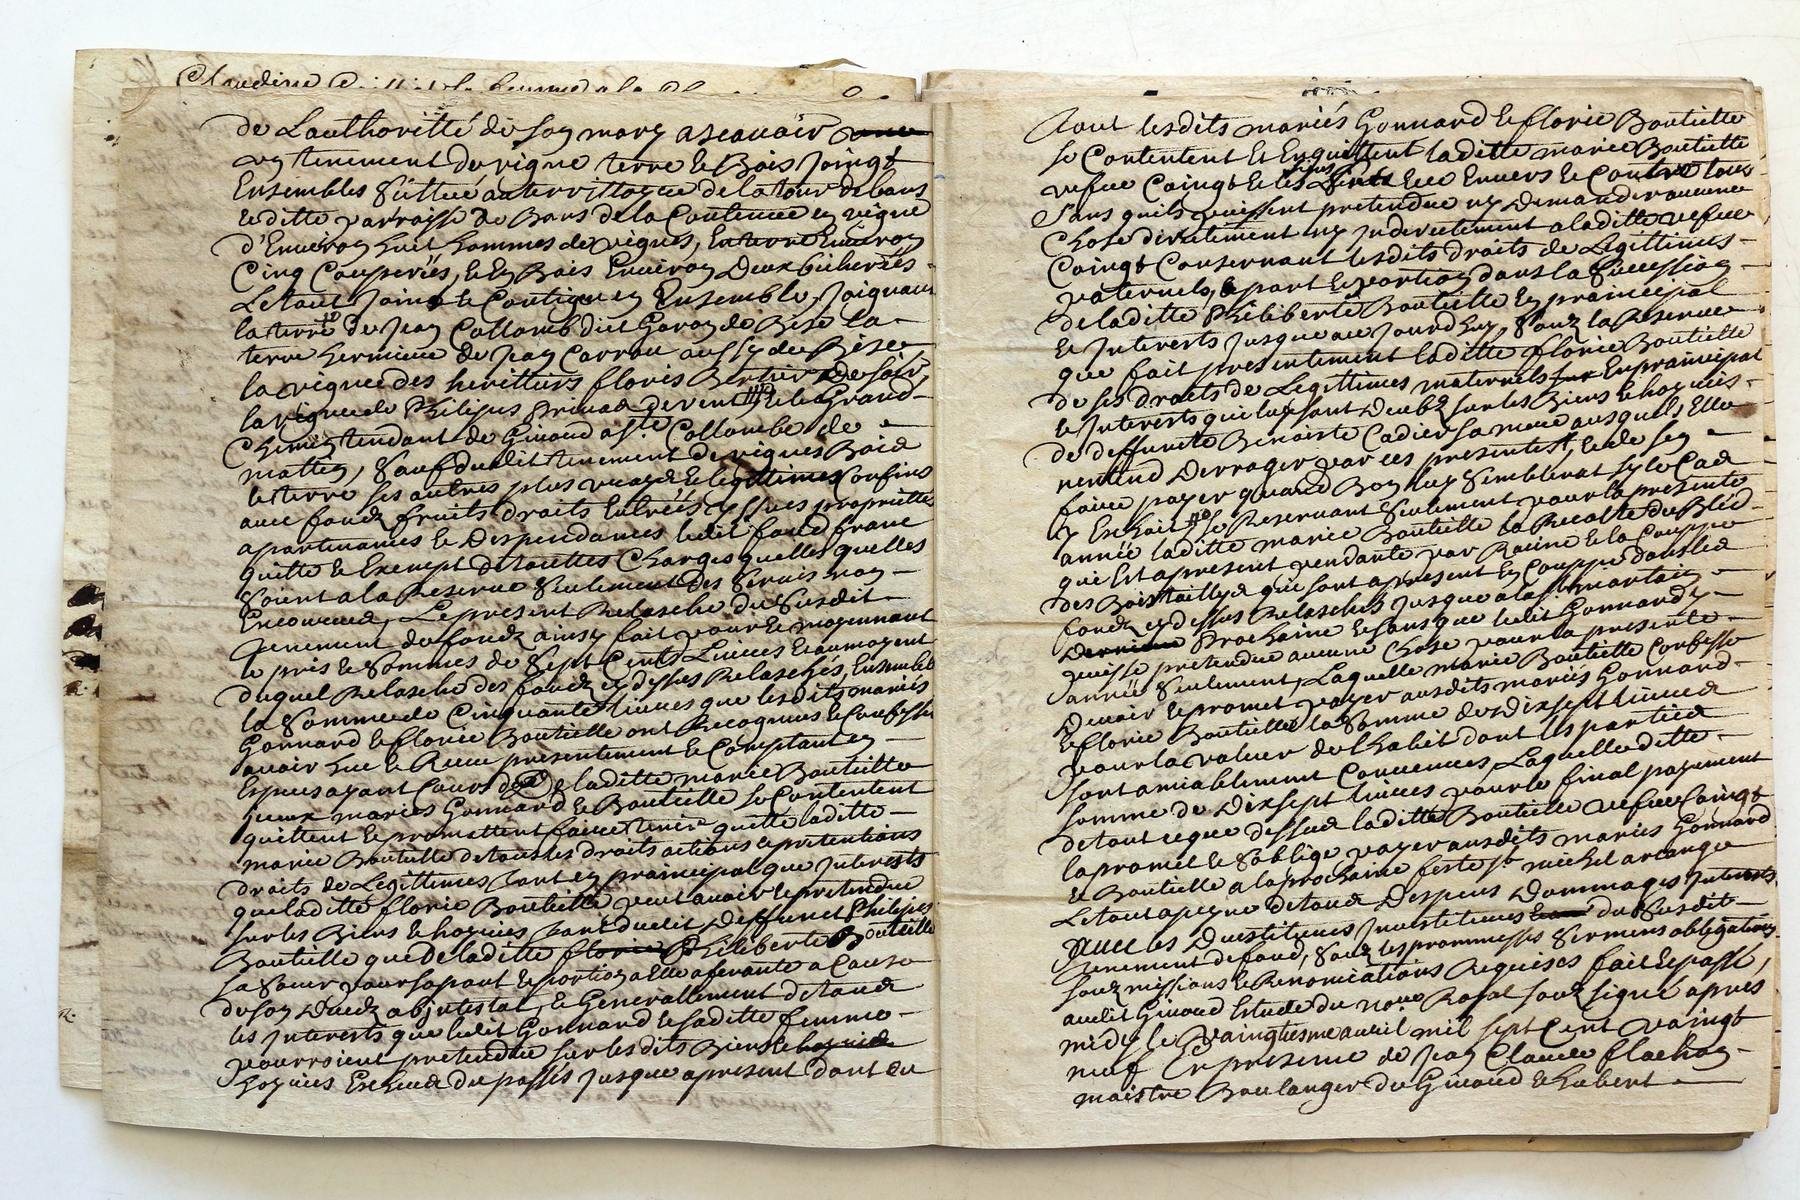 de Lauthoritté de son mary ascavoir
un tenement de vigne terre et Bois Joingt
Ensembles Scittué au territtoyre de la tour de bans
ditte parroisse de Bans de la Contenue en vigne
d'Environ huit hommes de vignes, En terre Environ
Cinq Couperées, et En Bois Environ Deux bicherées
Le tout Joint et Contigu en Ensemble, Joignant
la terre de Jean Collomb dict Garon de Bise la
terre hermiue de Jean Carron aussy de Bise
la vigne des herittiers floris Bertier de soir,
la vigne de Philipes Privad de vent et le Grand
Chemin tendant de Givord a St Collombe de
mattin, Sauf dudit tenement de vignes Bois
et terre ses autres plus vrays et legittimes Confins
avec fondz fruits droits Entrées yssues proprietté
apartenances et Despendances ledit fond franc
quitte et Exempt de touttes Charges quelles quelles
Soient a la Reserve Seulement des Servis non
Encourus, Le present Relasche du Susdit
Tenement de fondz ainsy fait pour et moyennant
le pris et Sommes de Sept Cents Livres Et aumoyent
duquel Relasche des fondz cy dessus Relaschés, Ensemble
la Somme de Cinquante Livres que lesdits mariés
Gonnard et florie Bouteille ont Recognus et Confessé
avoir heu et Receu presentement et Comptant en
Especes ayant Cours de laditte marie Bouteille
Iceux mariés Gonnard et Bouteille se Contentent
quittent et promettent faire tenir quitte laditte
marie Bouteille de tous les droits actions et pretentions
droits de Legittimes tant en praincipal que Interests
que laditte florie Bouteille peut avoir et pretendre
sur les Biens et hoyries tant dudit deffunct Philipes
Bouteille que de laditte Philiberte Bouteille
sa Sœur pour sa part et portion a Elle aferante a Cause
de son Decedz abintestat, et Generallement de tous
les Interests que ledit Gonnard et saditte femme
pourroient pretendre sur lesdits Biens et
hoyries Escheus du passés Jusque apresent dont du
tout lesdits mariés Gonnard et florie Bouteille
se Contentent Et Enquittent laditte marie Bouteille
vefve Coingt et les siens Et Envers et Contre tous
Sans quils puissent pretendre ny Demander aucune
Chose directement ny Indirectement a laditte vefve
Coingt Consernant lesdits droits de Legittimes
paternels, et part et portion dans la Succession
de laditte Philiberte Bouteille En praincipal
et Interests Jusque au Jourdhuy, Souz la Reserve
que fait presentement laditte florie Bouteille
de ses droits de Legittimes maternels En praincipal
et Interests qui luy sont Deubz sur les Biens et hoyries
de deffuncte Benoiste Cadier sa mere ausquels Elle
nentend Derroger par ces presentes, et de sen
faire payer quand Bon luy Semblerat sy le Cas
y Eschoit, se Reservant Seulement pour la presente
année laditte marie Bouteille la Recolte du Bled
que Est apresent pendante par Racine et la Couppe
des Bois taillys que sont apresent En Couppe dans les
fondz cy dessus Relaschés Jusque a la St martin
prochaine et sans que ledit Gonnard y
puisse pretendre aucune Chose pour la presente
année Seulement, Laquelle marie Bouteille Confesse
Devoir et promet payer ausdits mariés Gonnard
et florie Bouteille la Somme de Dixsept Livres
pour la valeur de lhabit dont les parties
sont amiablement Convenues, Laquelle ditte
somme de Dixsept Livres pour le final payement
de tout ce que dessus laditte Bouteille vefve Coingt
la promet et Soblige payer ausdits mariés Gonnard
et Bouteille a la prochaine feste St michel arcange
Le tout a peyne de tous Despens Dommages Interests
Avec les Devestitures Investitures du Susdit
Tenement de fond, Souz les prommesses Sermens obligations
souzmissions et Renonciations Requises fait et passé,
audit Givord Estude du no.re Royal souzsigné apres
midy le Vaingtiesme avril mil sept Cent vaingt
neuf En presence de Jean Claude flachon
maistre Boulanger du Givord et hubert